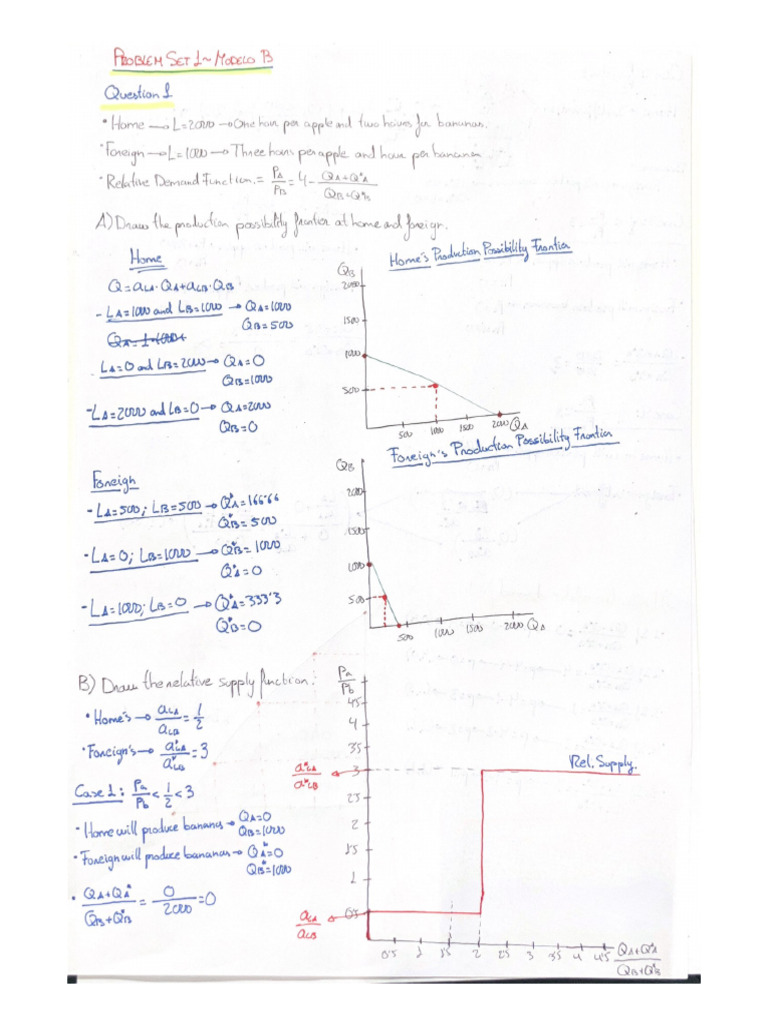 PROBLEM SET 1 ~ MODELO B
Question 1
• Home → L=2000 → One hour per apple and two hours for bananas.
• Foreign → L=1000 → Three hours per apple and hour per bananan
• Relative Demand Function. = PA/PB = 4 - QA+Q*A / QB+Q*B
A) Draw the production possibility frontier at home and foreign.
Home
Q = aLA · QA + aLB · QB
- LA=1000 and LB=1000 → QA=1000
QB=500
QA = 1·1000+
LA=0 and LB=2000 → QA=0
QB=1000
- LA=2000 and LB=0 → QA=2000
QB=0
Home's Production Possibility Frontier
QB
2000
1500
1000
500
500 1000 1500 2000 QA
Foreign's Production Possibility Frontier
Foreign
- LA=500; LB=500 → Q*A=166'66
Q*B=500
- LA=0; LB=1000 → Q*B=1000
Q*A=0
- LA=1000; LB=0 → Q*A=333'3
Q*B=0
QB
2000
1500
1000
500
500 1000 1500 2000 QA
B) Draw the relative supply function:
• Home's → aLA/aLB = 1/2
• Foreign's → a*LA/a*LB = 3
Case 1: Pa/Pb < 1/2 < 3
- Home will produce bananas → QA=0
QB=1000
• Foreign will produce bananas → Q*A=0
Q*B=1000
• QA+QA* / QB+Q*B = 0/2000 = 0
Pa/Pb
4'5
4
3'5
3
2'5
2
1'5
1
0'5
a*LA/a*LB
aLA/aLB
Rel. Supply
0'5 1 1'5 2 2'5 3 3'5 4 4'5 QA+Q*A / QB+Q*B